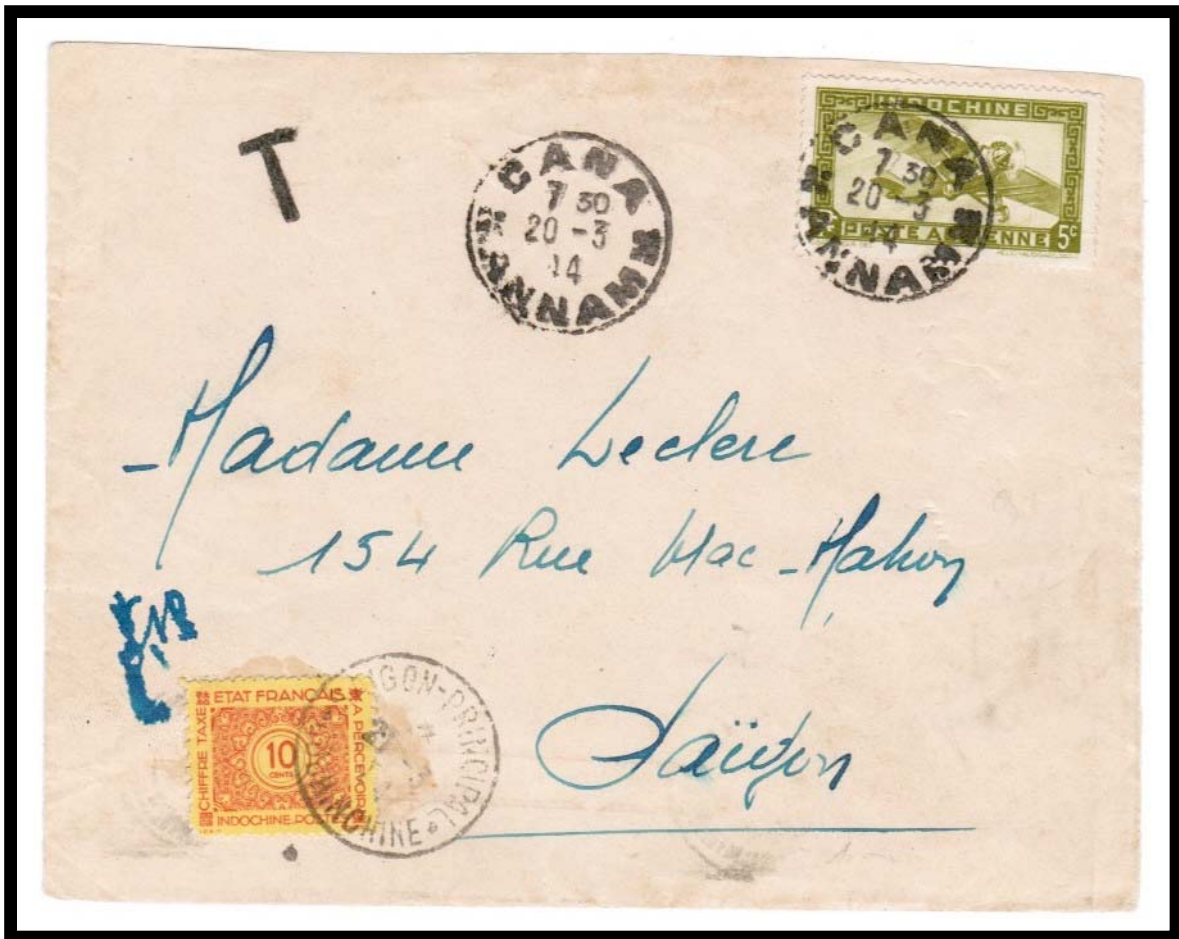 T
CANA
7 30
20 - 3
44
ANNAM
INDOCHINE
POSTE AERIENNE 5c
CANA
7 30
20 - 3
44
ANNAM
Madame Leclerc
154 Rue Mac-Mahon
Saïgon
ETAT FRANÇAIS
CHIFFRE TAXE
A PERCEVOIR
10
CENTS
INDOCHINE.POSTES
SAIGON-PRINCIPAL
COCHINCHINE